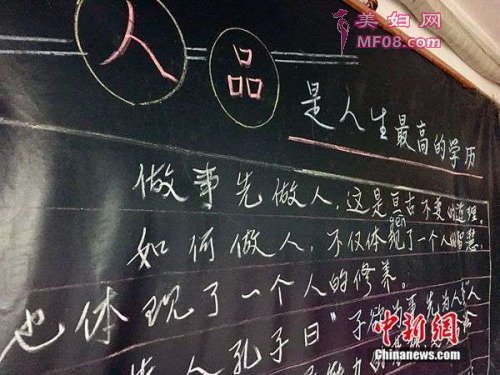 美妇网
MF08.com
人品
是人生最高的学历
做事先做人,这是亘古不变的道理,
gèn
如何做人,不仅体现了一个人的智慧,
也体现了一个人的修养。
孔子曰"子欲为事,先为人
中新网
Chinanews.com